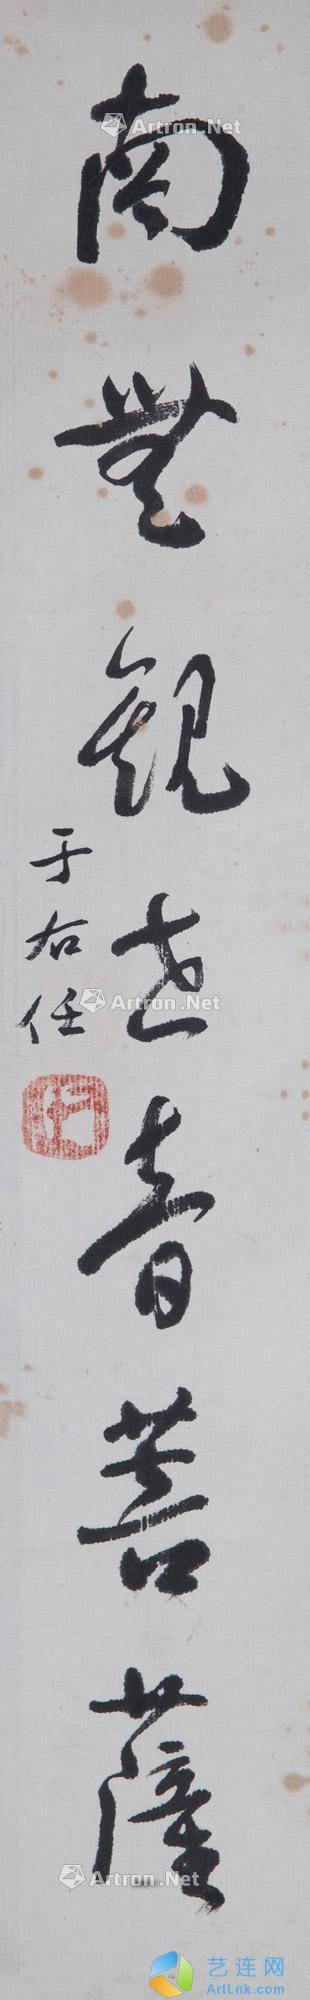 南無觀世音菩薩
于右任
Artron.Net
Artron.Net
Artron.Net
Artron.Net
Artron.Net
艺连网
ArtLnk.com